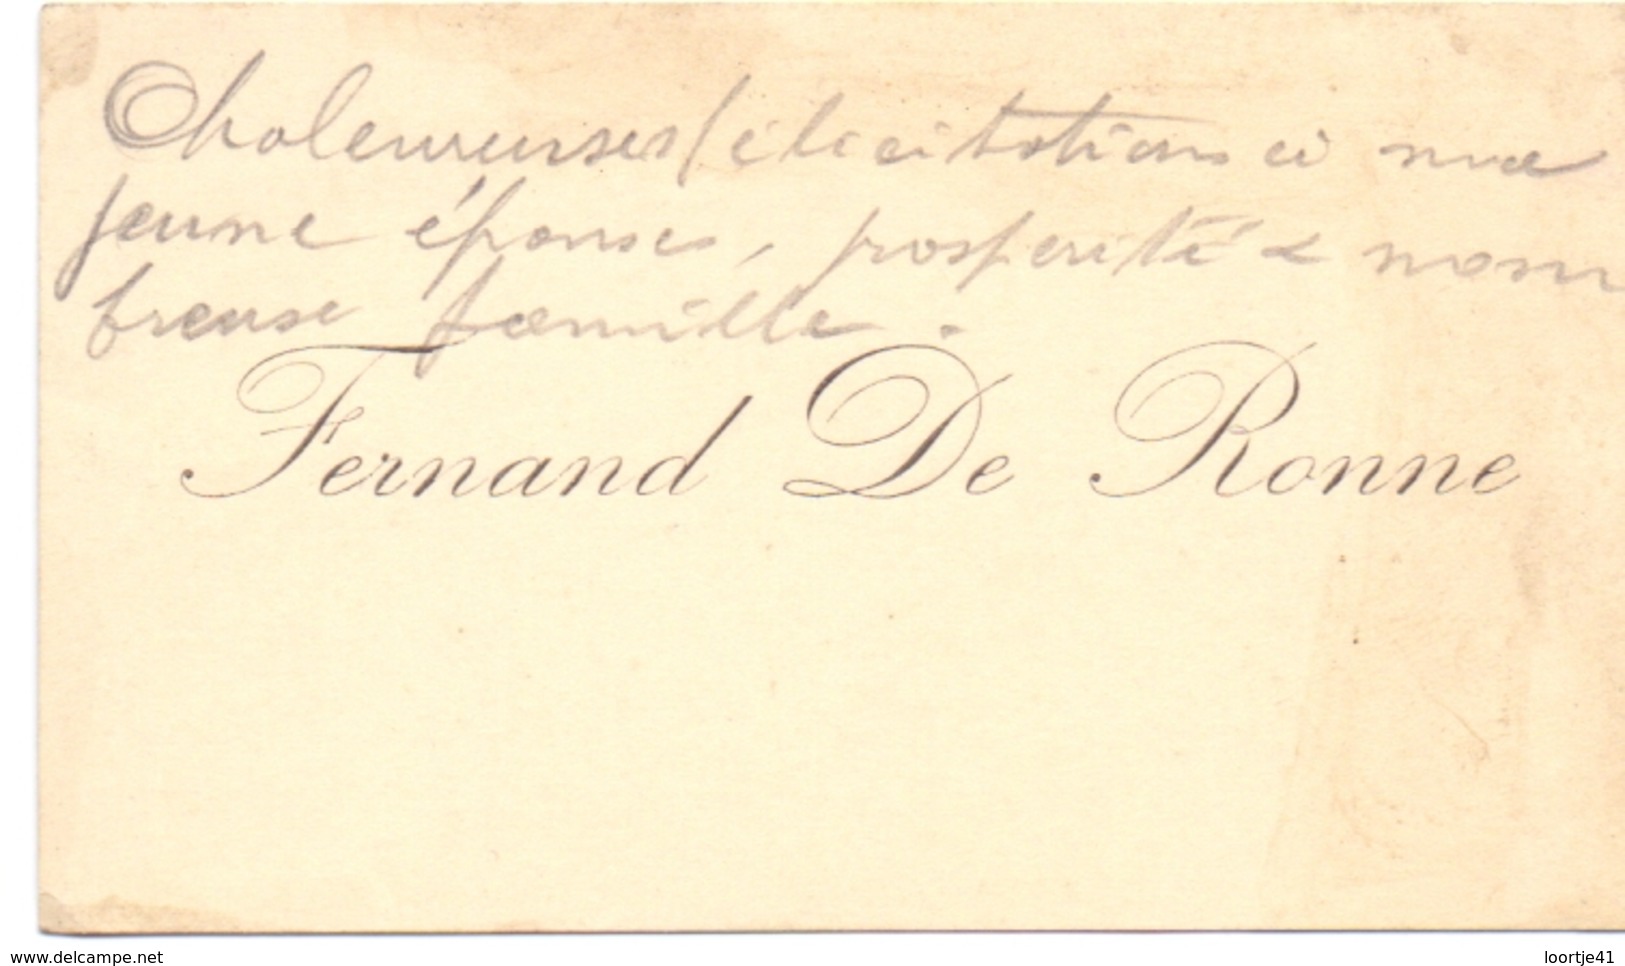 Chaleureuses félicitations à
jeune épouse, prosperité & nom
breuse famille.
Fernand De Ronne
www.delcampe.net
loortje41